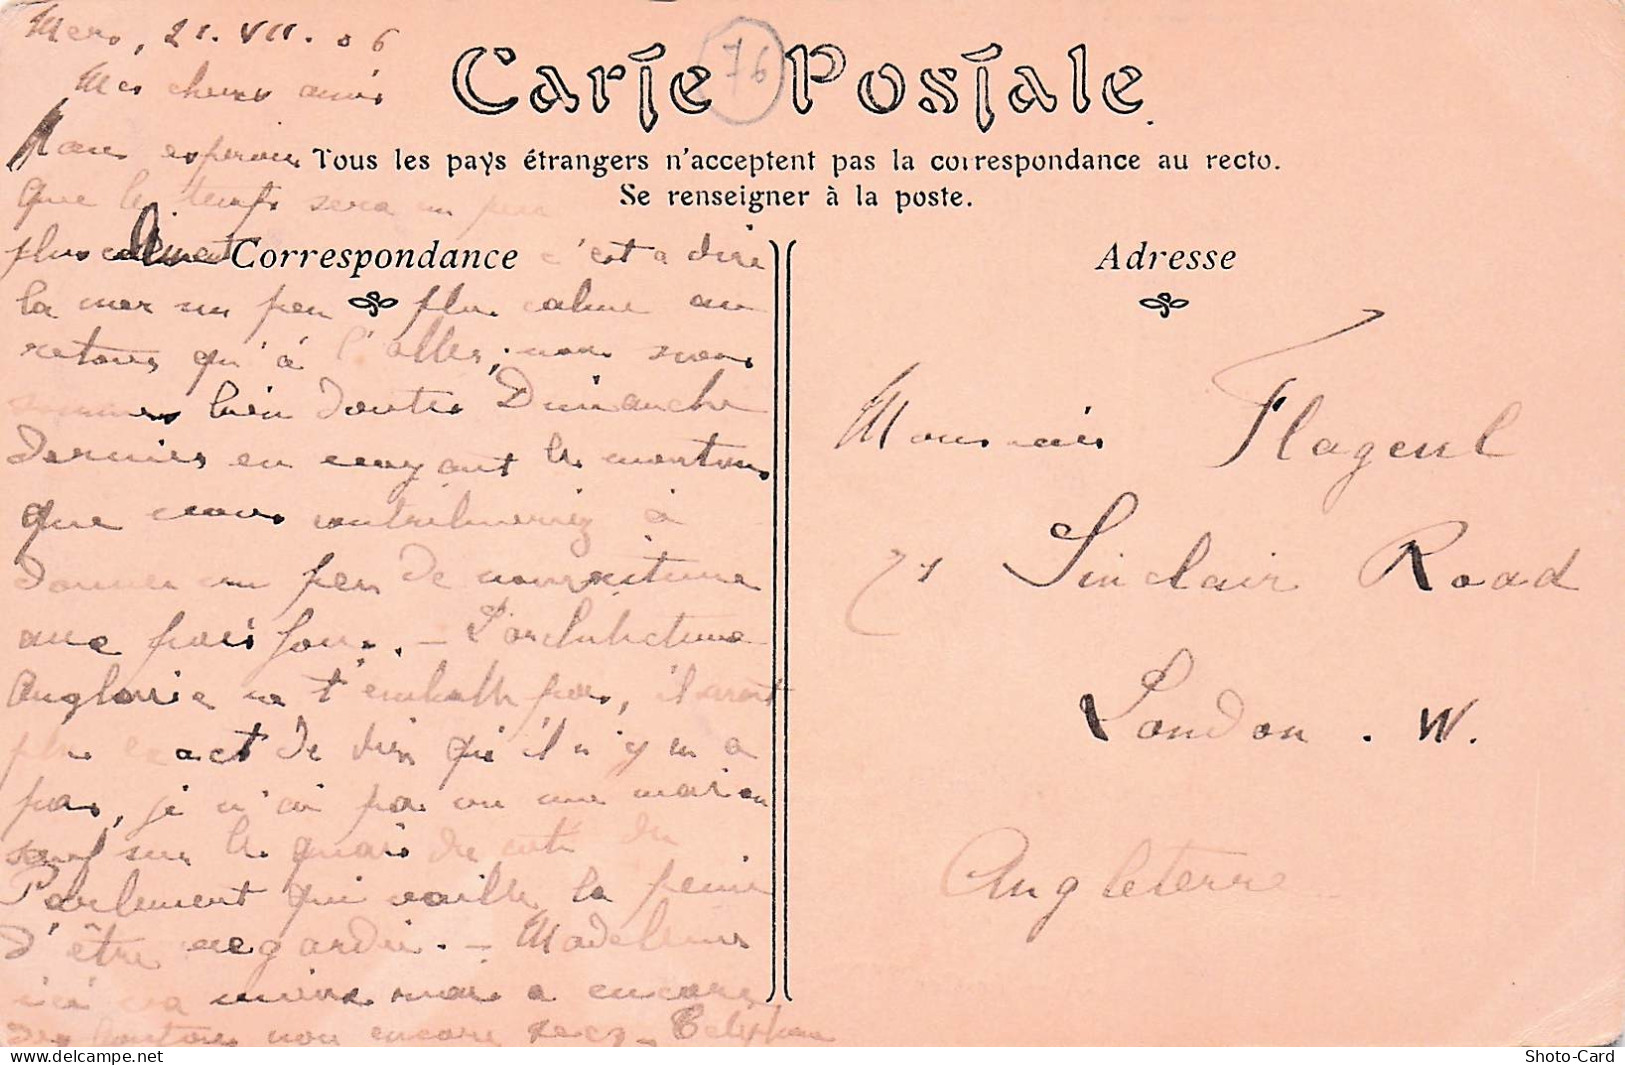 Mers, 21. VII. 06
Mes chers amis
Nous esperons
que le temps sera un peu
plus calmant c'est a dire
la mer un peu plus calme au
retour qu'à l'aller, nous nous
sommes bien doutés Dimanche
dernier en voyant les moutons
que vous contribueriez à
donner un peu de nourriture
aux poissons. — L'architecture
Anglaise ne t'emballe pas, il serait
plus exact de dire qu'il n'y en a
pas, je n'ai pas vu une maison
sauf sur les quais du coté du
Parlement qui vaille la peine
d'être regardée. — Madeleine
ici va mieux mais a encore
des boutons non encore secs. Telephone
Carte Postale
76
Tous les pays étrangers n'acceptent pas la correspondance au recto.
Se renseigner à la poste.
Correspondance
Adresse
Monsieur Flageul
71 Sinclair Road
London . W.
Angleterre
Shoto-Card